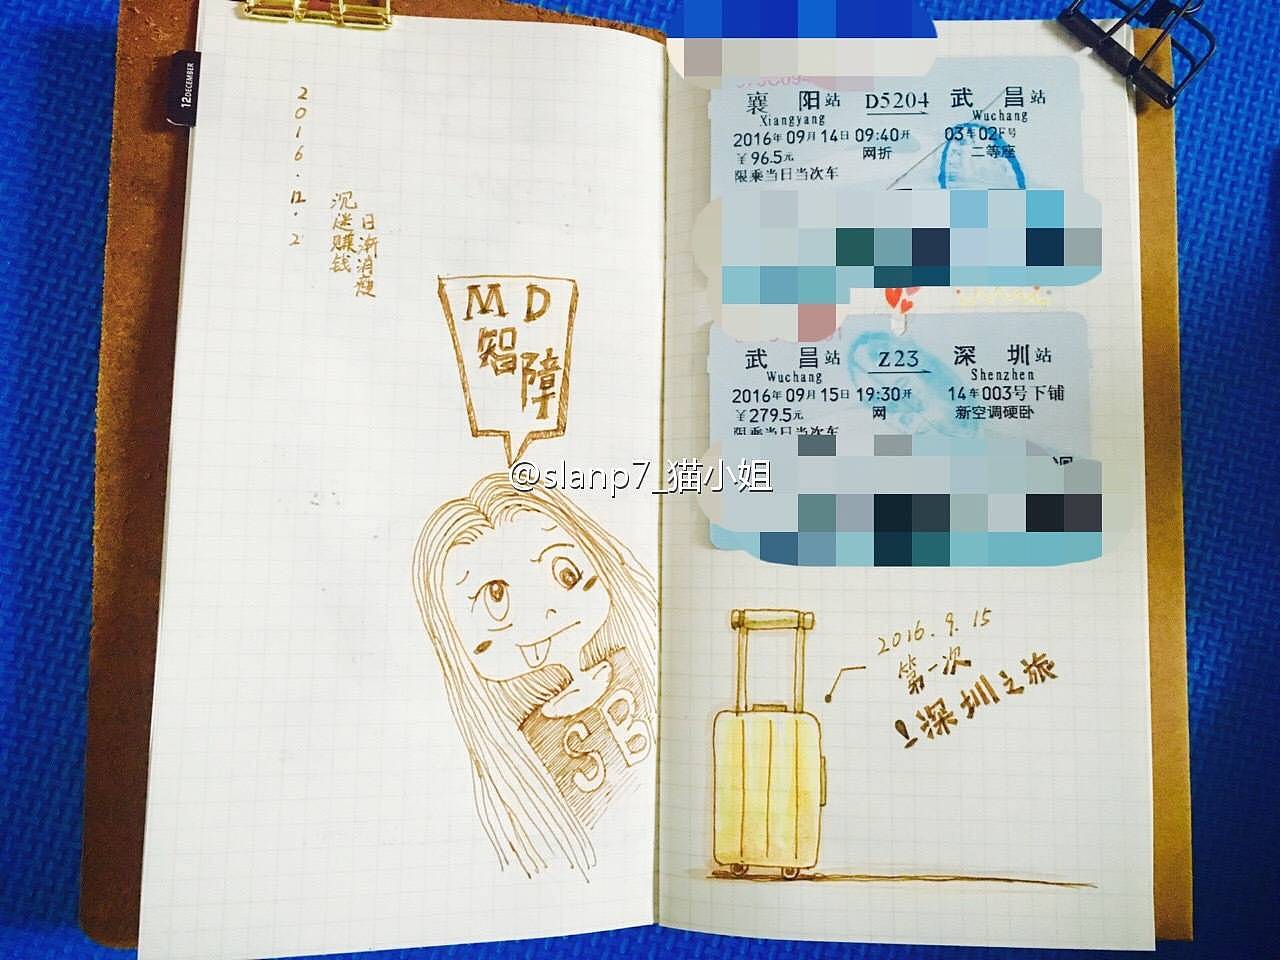 12 DECEMBER
2016.12.2
沉迷赚钱
日渐消瘦
MD
智障
SB
襄阳站 D5204 武昌站
Xiangyang Wuchang
2016年09月14日09:40开 03车02F号
¥96.5元 网折 二等座
限乘当日当次车
武昌站 Z23 深圳站
Wuchang Shenzhen
2016年09月15日19:30开 14车003号下铺
¥279.5元 网 新空调硬卧
限乘当日当次车
@slanp7_猫小姐
2016.9.15
第一次
深圳之旅!